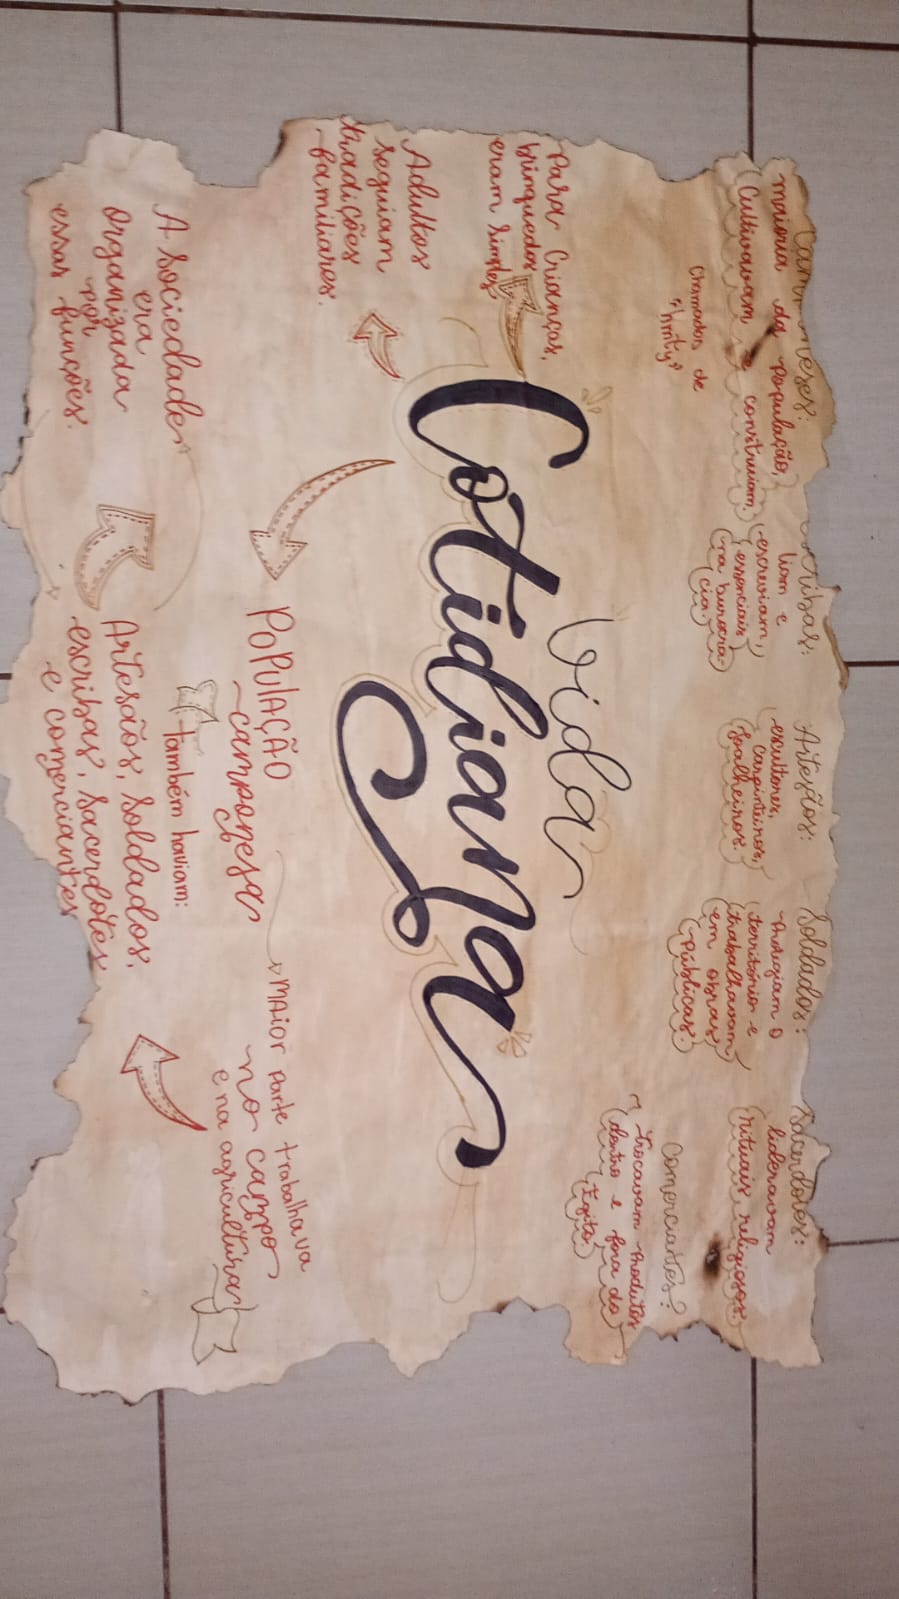 Camponeses:
maioria da população,
Cultivavam e construiam.
Chamados de
"hmty"
Escribas:
liam e
escreviam,
essenciais
na burocra-
cia.
Artesãos:
escultores,
carpinteiros,
Joalheiros.
Soldados:
Protegiam o
território e
trabalhavam
em obras
Públicas.
Sacerdotes:
lideravam
rituais religiosos.
Comerciantes:
trocavam produtos
dentro e fora do
Egito.
Vida
Cotidiana
Para Crianças,
brinquedos
eram simples
Adultos
seguiam
tradições
familiares.
POPULAÇÃO
camponesa
MAIOR Parte trabalhava
no campo
e na agricultura
também haviam:
Artesãos, Soldados,
escribas, Sacerdotes
e comerciantes
A Sociedade
era
Organizada
por
essas funções.